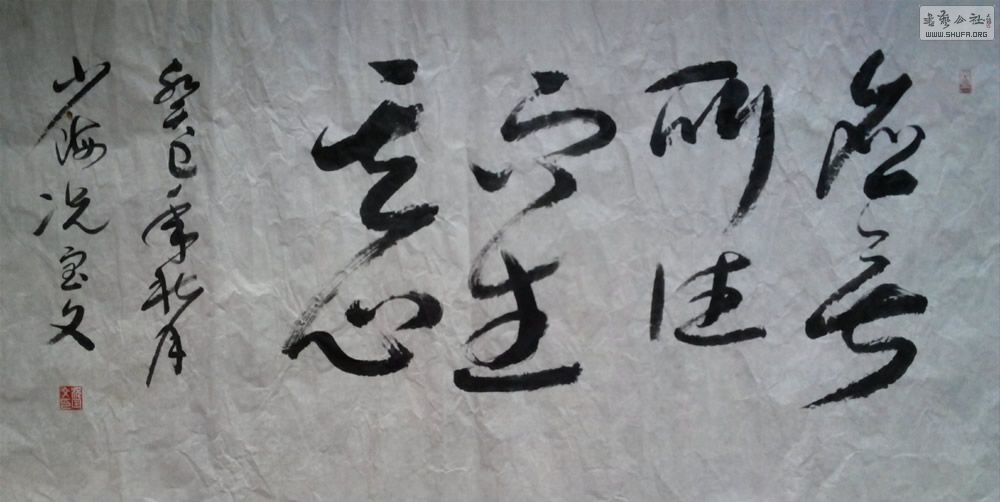 應無
所住
而生
其心
癸巳年秋月
小海况宝文
書藝公社
WWW.SHUFA.ORG